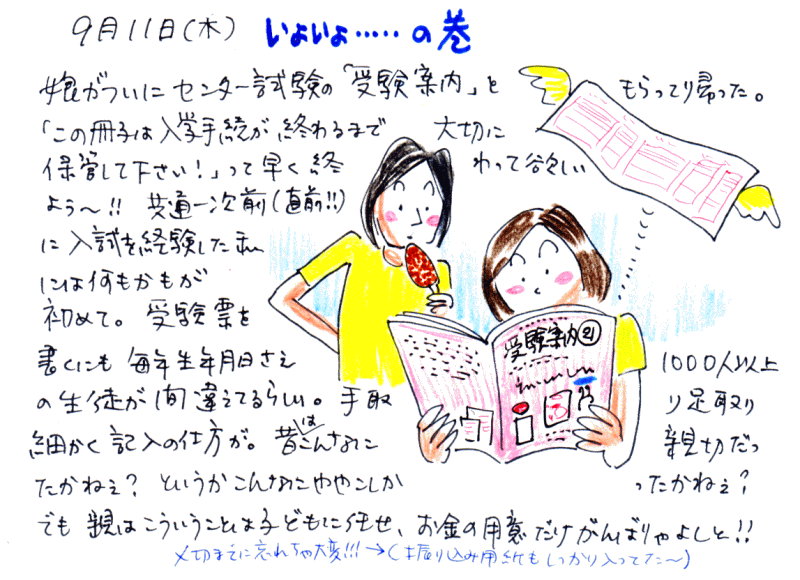 9月11日(木) いよいよ……の巻
娘がついにセンター試験の「受験案内」と もらってり帰った。
「この冊子は入学手続が終わるまで 大切に
保管して下さい!」って早く終 わって欲しい
よう〜!! 共通一次前(直前!!)
に入試を経験した私
には何もかもが
初めて。受験票を
書くにも毎年生年月日さえ 1000人以上
の生徒が間違えてるらしい。手取 り足取り
細かく記入の仕方が。昔はこんなに 親切だっ
たかねぇ?というかこんなにややこしか ったかねぇ?
でも親はこういうことは子どもに任せ、お金の用意だけがんばりゃよしと!!
〆切までに忘れちゃ大変!!!→(振り込み用紙もしっかり入ってた〜)
受験案内21